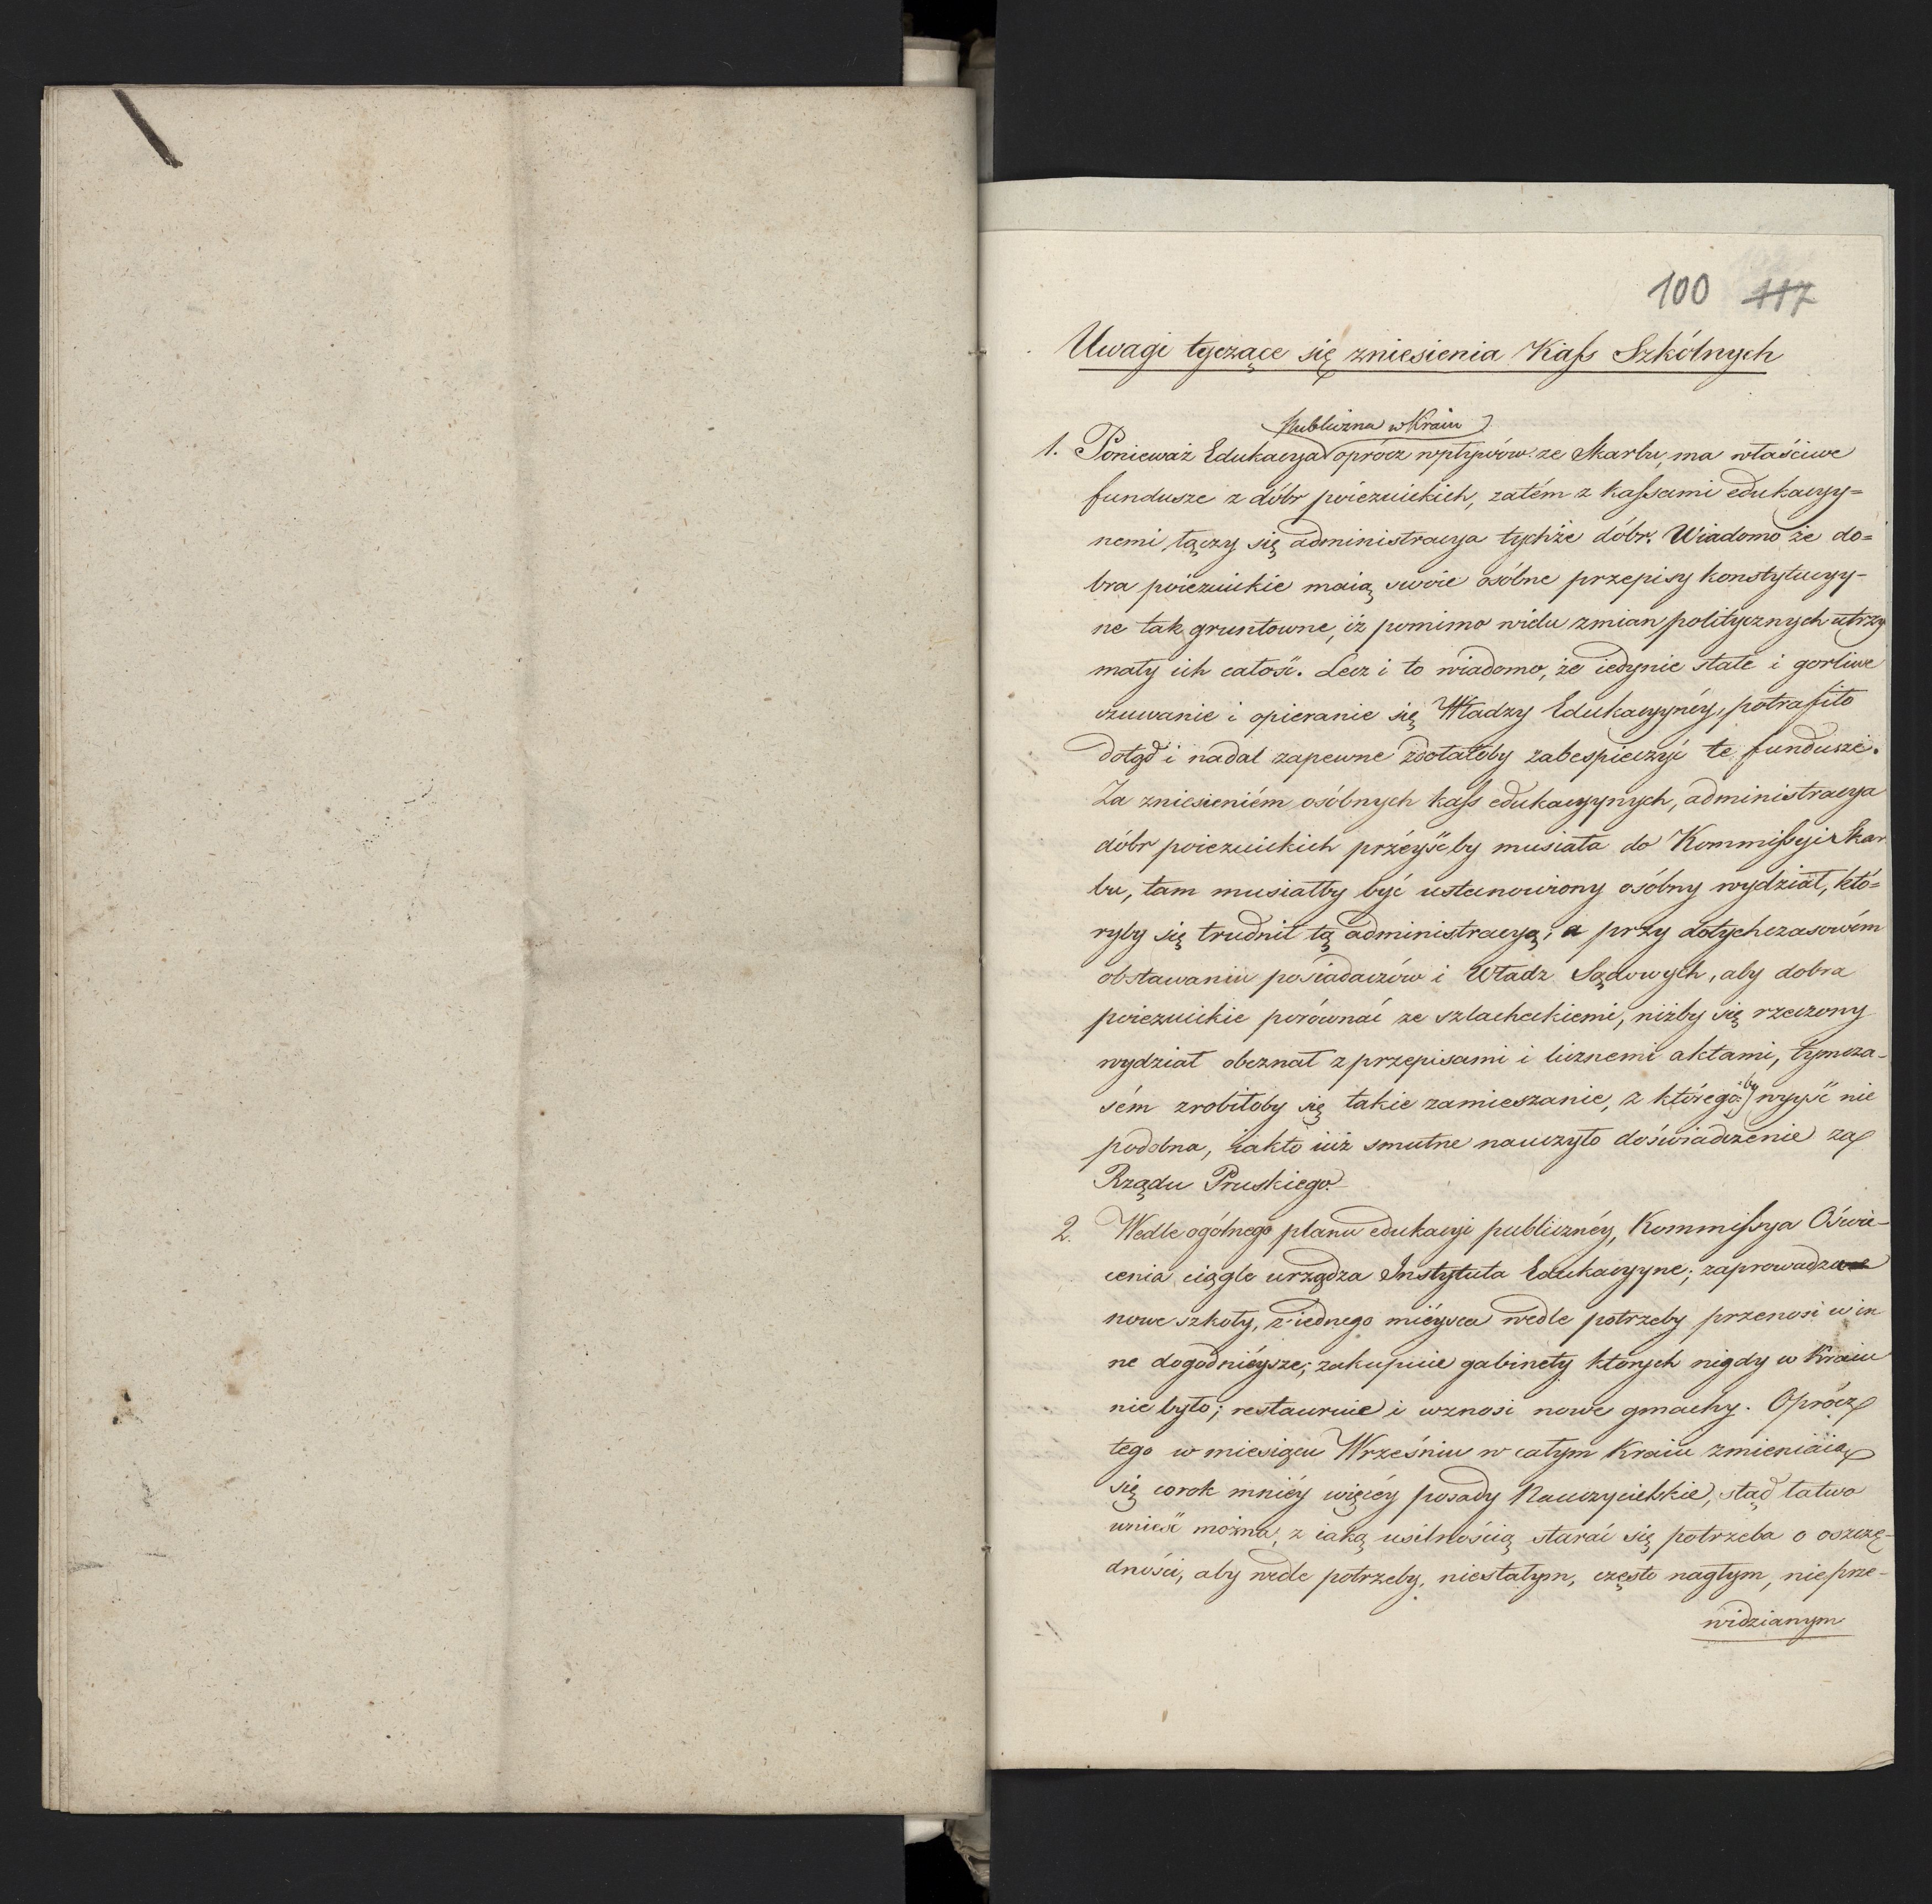 100 117
Uwagi tyczące się zniesienia Kass Szkólnych
Publiczna w Kraiu
1. Ponieważ Edukacya oprócz wpływów ze Skarbu, ma właściwe
fundusze z dóbr poiezuickich, zatém z kassami edukacyy=
nemi łączy się administracya tychże dóbr. Wiadomo że do=
bra poiezuickie maią swoie osóbne przepisy konstytucyy-
ne tak gruntowne, iż pomimo wielu zmian politycznych utrzy
mały ich całość. Lecz i to wiadomo, że iedynie stałe i gorliwe
czuwanie i opieranie się Władzy Edukacyynéy, potrafiło
dotąd i nadal zapewne zdołałoby zabespieczyć te fundusze.
Za zniesieniém osóbnych kass edukacyynych, administracya
dóbr poiezuickich przéyśćby musiała do Kommissyi Skar
bu, tam musiałby być ustanowiony osóbny wydział, któ=
ryby się trudnił tą administracyą; a przy dotychczasowém
obstawaniu posiadaczów i Władz Sądowych, aby dobra
poiezuickie porównać ze szlacheckiemi, niżby się rzeczony
wydział obeznał z przepisami i licznemi aktami, tymcza-
sém zrobiłoby się takie zamieszanie, z którego by wyyść nie
podobna, iakto iuż smutne nauczyło doświadczenie za
Rządu Pruskiego.
2. Wedle ogólnego planu edukacyi publicznéy, Kommissya Oświe-
cenia ciągle urządza Instytuta Edukacyyne; zaprowadza
nowe szkoły, z iednego miéysca wedle potrzeby przenosi w in
ne dogodniéysze; zakupuie gabinety których nigdy w Kraiu
nie było; restauruie i wznosi nowe gmachy. Oprócz
tego w miesiącu Wrześniu w całym Kraiu zmieniaią
się corok mniéy więcéy posady Nauczycielskie, stąd łatwo
wnieść można, z iaką usilnością starać się potrzeba o oszczę-
dności, aby wedle potrzeby, niestałym, często nagłym, nieprze-
widzianym